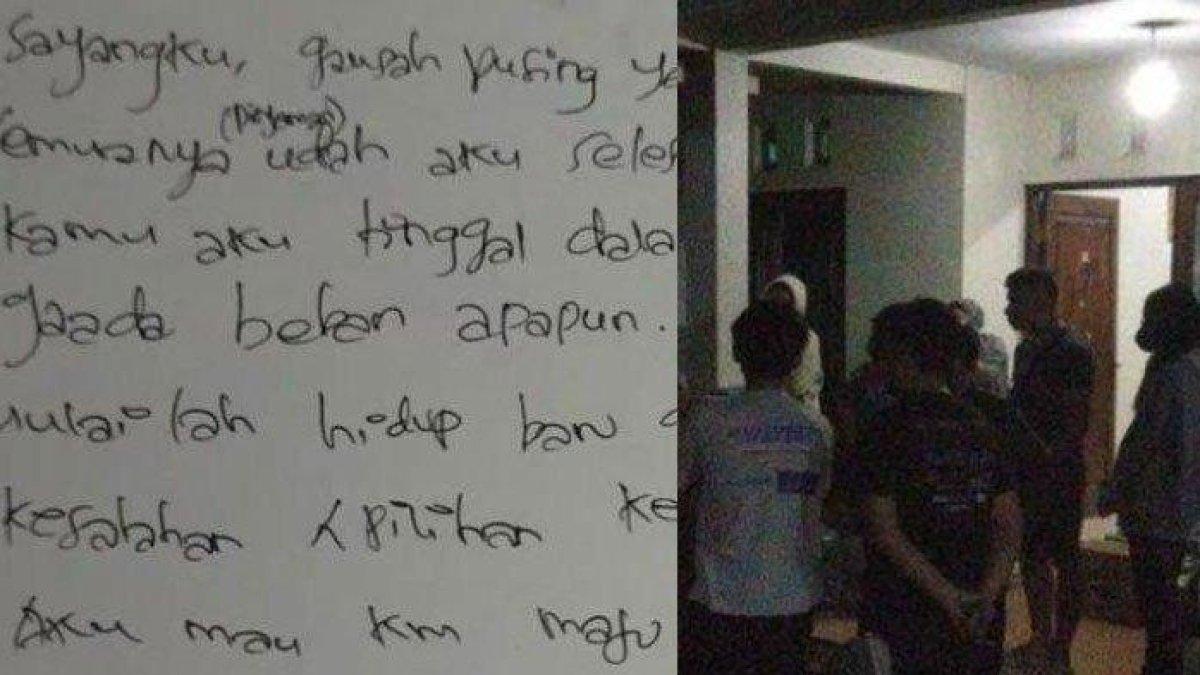 Sayangku, gausah pusing ya
emuanya (pinjaman) udah aku seles
kamu aku tinggal dala
gaada beban apapun.
mulai lah hidup baru
kesalahan pilihan ke
Aku mau km mafu